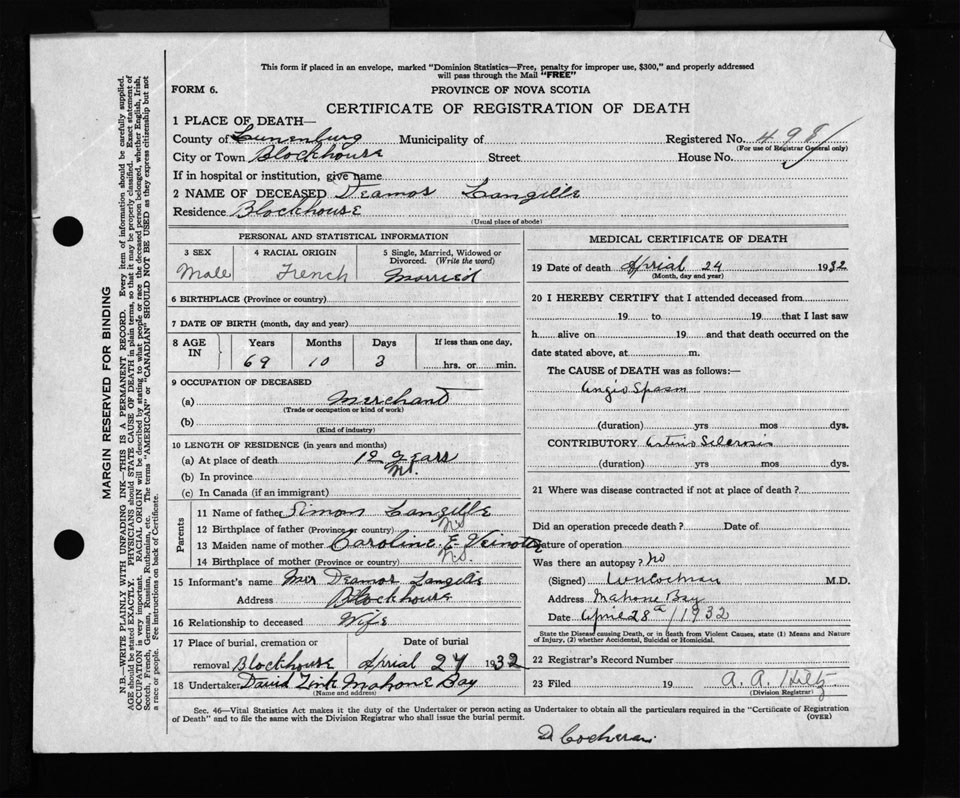 This form if placed in an envelope, marked "Dominion Statistics—Free, penalty for improper use, $300," and properly addressed
will pass through the Mail "FREE"
FORM 6.
PROVINCE OF NOVA SCOTIA
CERTIFICATE OF REGISTRATION OF DEATH
1 PLACE OF DEATH—
County of Lunenburg Municipality of Registered No. 498
(For use of Registrar General only)
City or Town Blockhouse Street House No.
If in hospital or institution, give name
2 NAME OF DECEASED Deamos Langille
Residence Blockhouse
(Usual place of abode)
PERSONAL AND STATISTICAL INFORMATION
3 SEX
Male
4 RACIAL ORIGIN
French
5 Single, Married, Widowed or
Divorced. (Write the word)
Married
6 BIRTHPLACE (Province or country)
7 DATE OF BIRTH (month, day and year)
8 AGE
IN
Years Months Days If less than one day,
69 10 3 hrs. or min.
9 OCCUPATION OF DECEASED
(a) Merchant
(Trade or occupation or kind of work)
(b)
(Kind of industry)
10 LENGTH OF RESIDENCE (in years and months)
(a) At place of death 12 years
(b) In province
(c) In Canada (if an immigrant)
Parents
11 Name of father Simon Langille
12 Birthplace of father (Province or country) N.S
13 Maiden name of mother Caroline E Veinotte
14 Birthplace of mother (Province or country) N.S.
15 Informant's name Mrs Deamos Langille
Address Blockhouse
16 Relationship to deceased Wife
17 Place of burial, cremation or Date of burial
removal Blockhouse Aprial 27 1932
18 Undertaker David Zink Mahone Bay
(Name and address)
MEDICAL CERTIFICATE OF DEATH
19 Date of death Aprial 24 1932
(Month, day and year)
20 I HEREBY CERTIFY that I attended deceased from
19 to 19 that I last saw
h alive on 19 and that death occurred on the
date stated above, at m.
The CAUSE of DEATH was as follows:—
Angio Spasm
(duration) yrs mos dys.
CONTRIBUTORY Arterio Sclerosis
(duration) yrs mos dys.
21 Where was disease contracted if not at place of death?
Did an operation precede death? Date of
Nature of operation
Was there an autopsy? No
(Signed) Cochran M.D.
Address Mahone Bay
Date April 28th/1932
State the Disease causing Death, or in death from Violent Causes, state (1) Means and Nature
of Injury, (2) whether Accidental, Suicidal or Homicidal.
22 Registrar's Record Number
23 Filed 19 A. A. Hiltz
(Division Registrar)
Sec. 46—Vital Statistics Act makes it the duty of the Undertaker or person acting as Undertaker to obtain all the particulars required in the "Certificate of Registration
of Death" and to file the same with the Division Registrar who shall issue the burial permit. (OVER)
Dr Cochran.
MARGIN RESERVED FOR BINDING
N.B.—WRITE PLAINLY WITH UNFADING INK—THIS IS A PERMANENT RECORD. Every item of information should be carefully supplied.
AGE should be stated EXACTLY. PHYSICIANS should STATE CAUSE OF DEATH in plain terms, so that it may be properly classified. Exact statement of
OCCUPATION is very important. RACIAL ORIGIN will be described by stating to what people or race the deceased person belonged, whether English, Irish,
Scotch, French, German, Russian, Ruthenian, etc. The terms "AMERICAN" or "CANADIAN" SHOULD NOT BE USED as they express citizenship but not
a race or people. See instructions on back of Certificate.